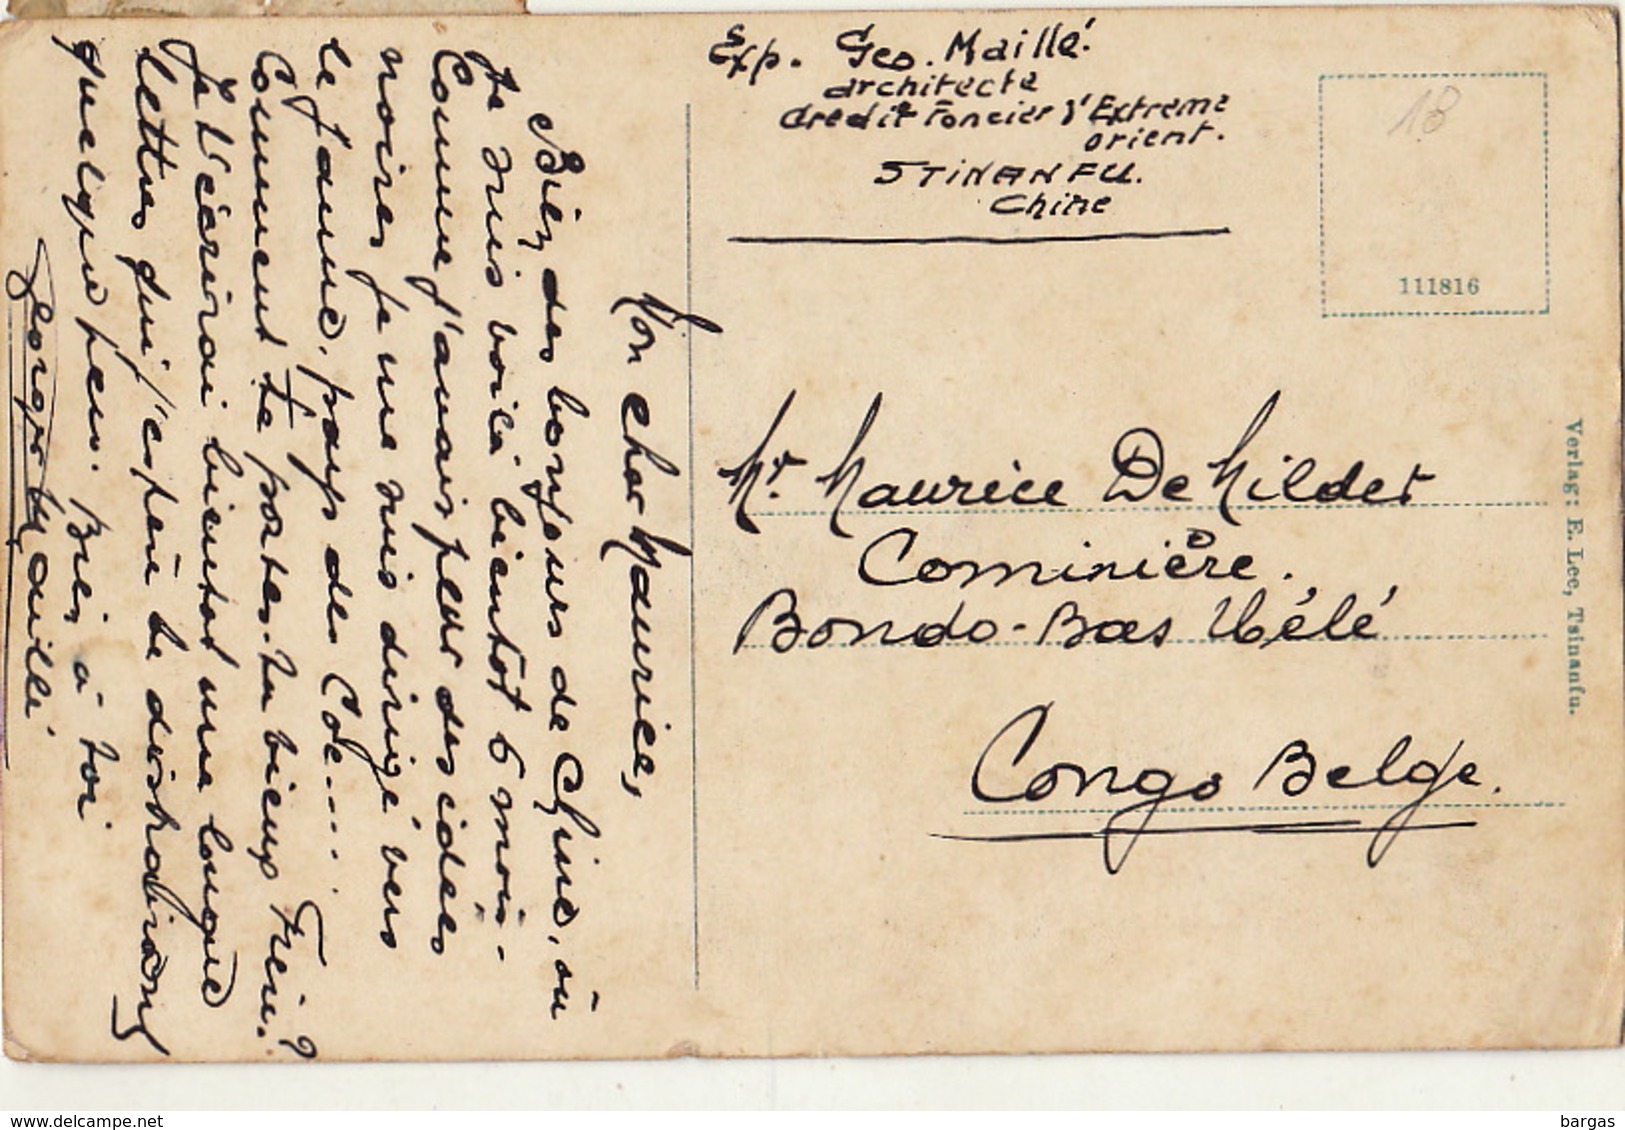 Exp. Geo. Maillé.
architecte
Crédit Foncier d'Extrême
orient.
TSINANFU.
Chine
111816
18
Mr. Maurice De Milder
Cominière.
Bondo-Bas Uélé
Congo Belge.
Verlag: E. Lee, Tsinanfu.
Mon cher Maurice,
Bien des bonjours de Chine, où
je suis voilà bientôt 6 mois.
Comme j'avais peur des idées
noires je me suis dirigé vers
le jaune, pays des Coe.....
Comment te portes-tu vieux Frein?
Je t'écrirai bientôt une longue
lettre qui j'espère te distraira
quelque peu. Bien à toi
Georges Maillé
bargas